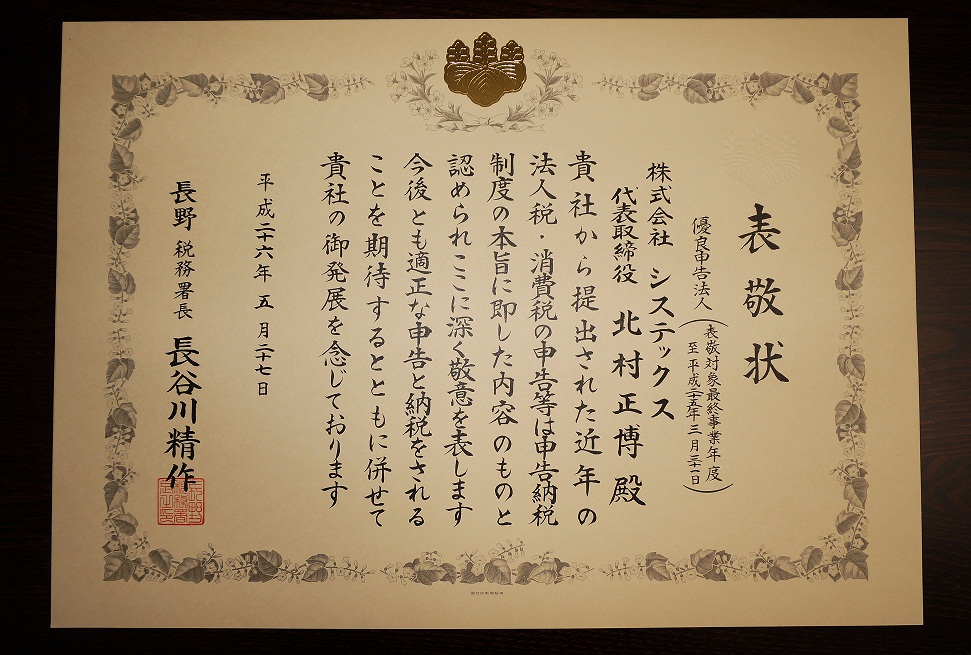 表敬状
優良申告法人
(表敬対象最終事業年度
至 平成二十五年三月三十一日)
株式会社 システックス
代表取締役 北村正博 殿
貴社から提出された近年の
法人税・消費税の申告等は申告納税
制度の本旨に即した内容のものと
認められここに深く敬意を表します
今後とも適正な申告と納税をされる
ことを期待するとともに併せて
貴社の御発展を念じております
平成二十六年 五 月 二十七日
長野 税務署長 長谷川精作